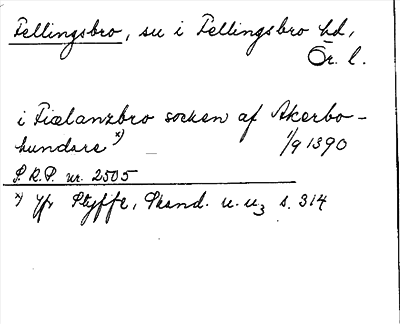 Fellingsbro, sn i Fellingsbro hd,
Ör. l.
i Fiælanzbro socken af Akerbo-
hundare x) 1/9 1390
S.R.P. nr. 2505
x) Jfr Styffe, Skand. u. u3 s. 314